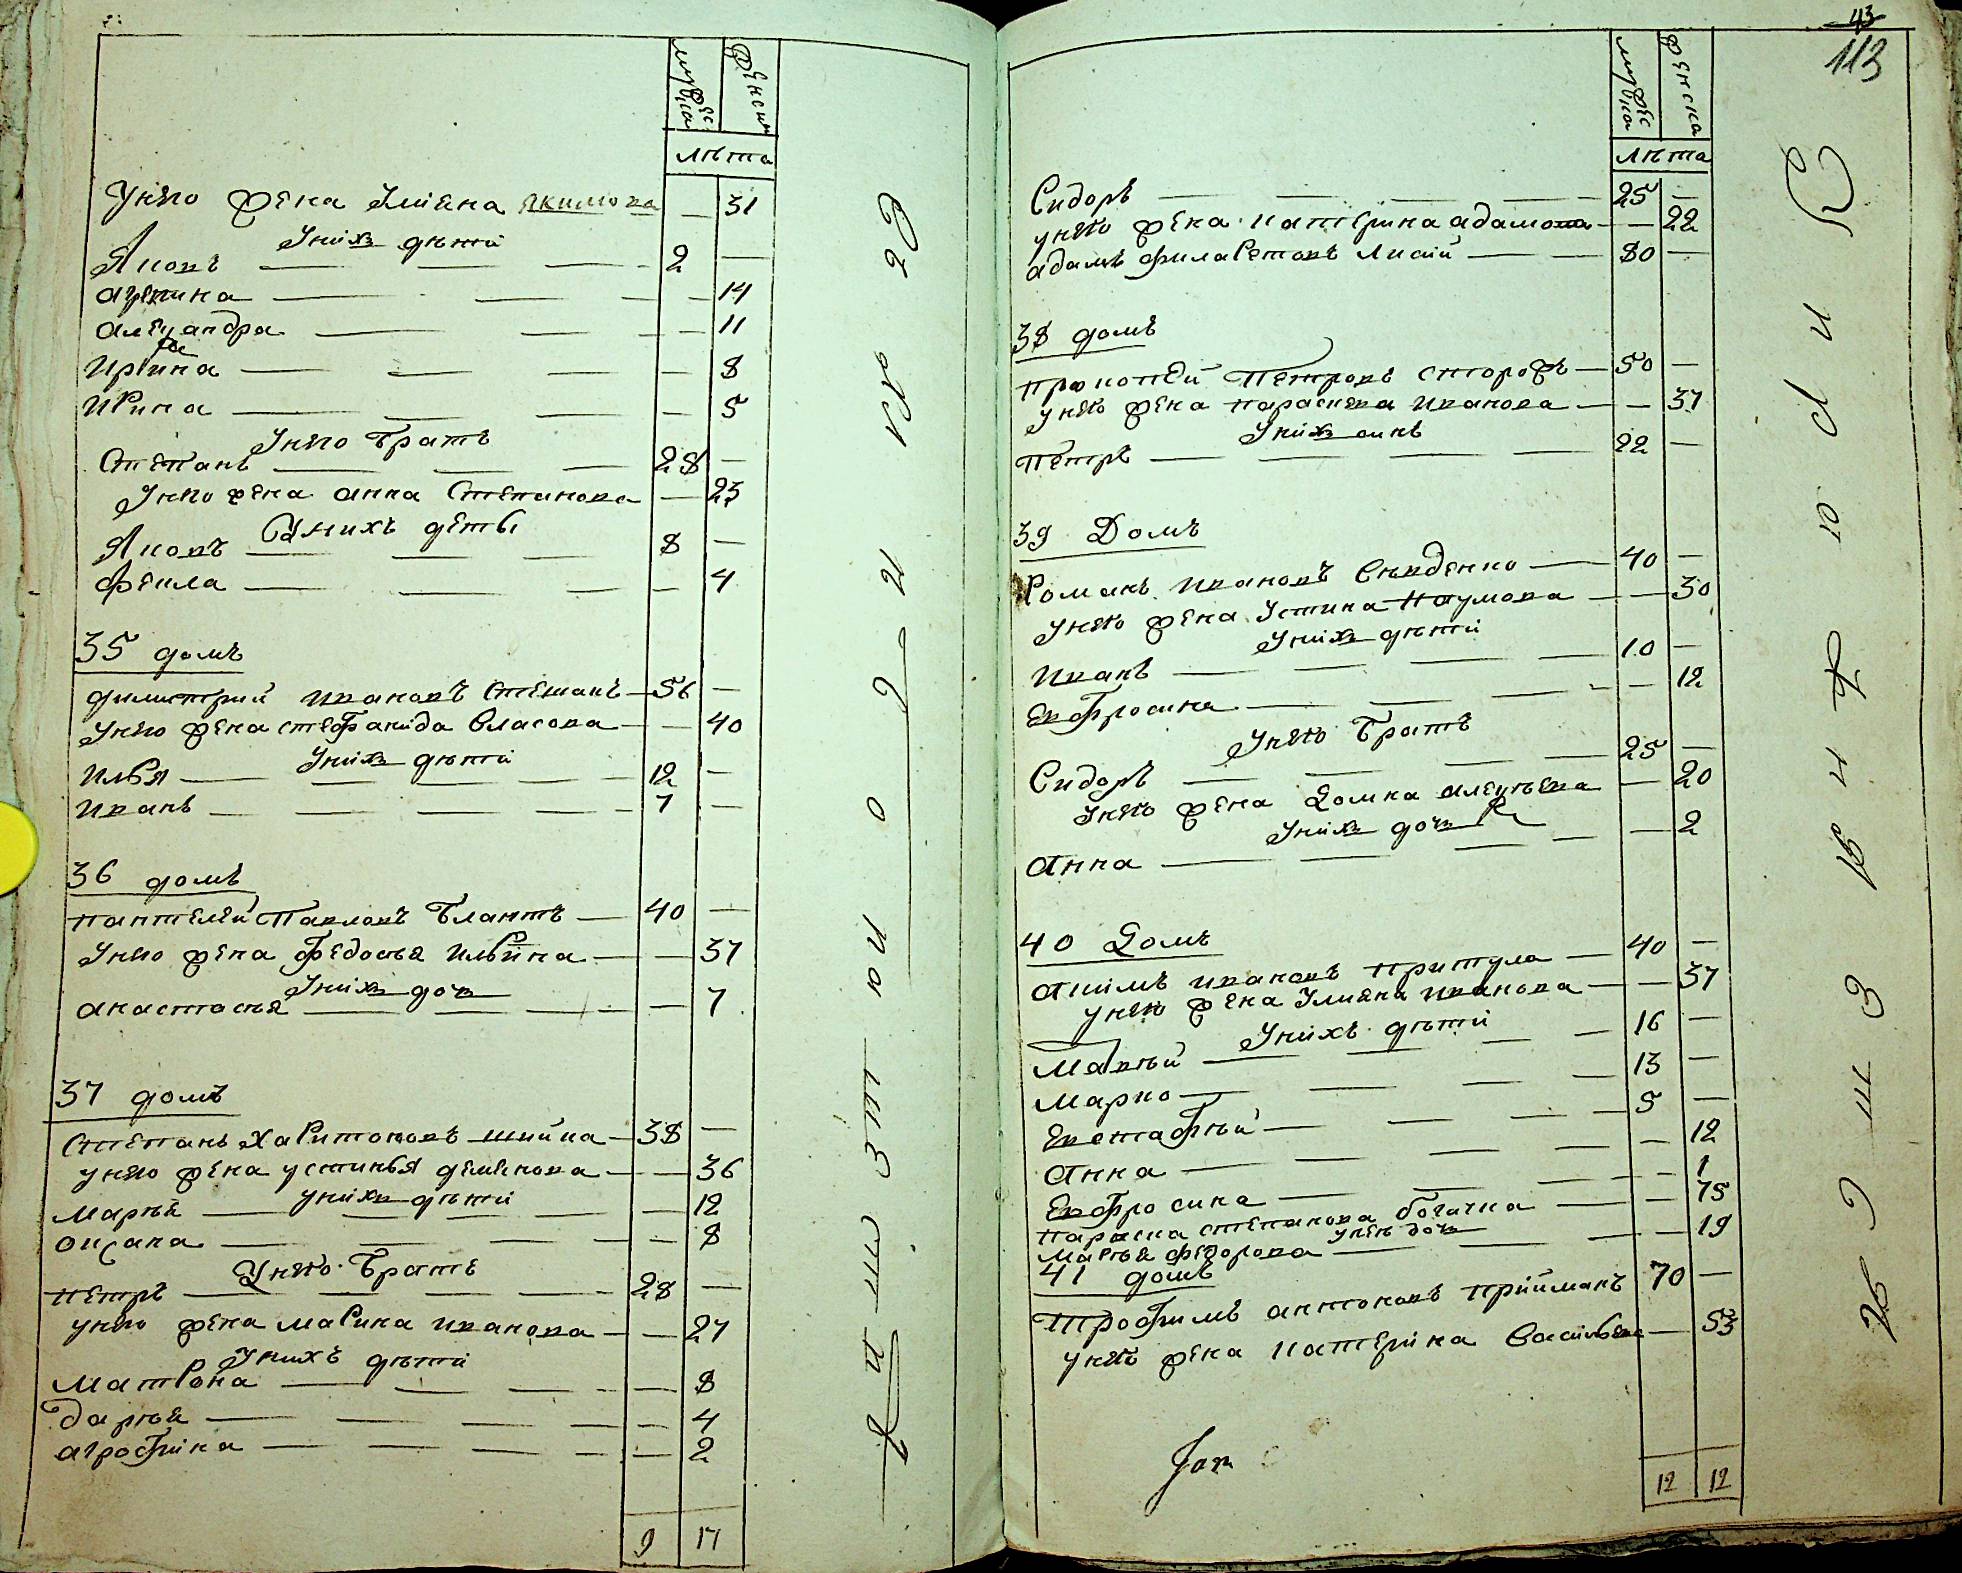 мужеска
женски
лѣта
Унего жена Улияна Якимова — 31
Унихъ дѣти
Яковъ 2 —
агрепина — 14
алеѯандра — 11
Ирина — 8
Ирина — 5
Унего братъ
Степанъ 28 —
Унего жена анна Степанова — 23
Унихъ деты
Яковъ 8 —
фекла — 4
35 домъ
димитрий ивановъ 56 —
Унего жена стефанїда власова — 40
Унихъ дѣти
илья 12 —
иванъ 7 —
36 домъ
пантелей павловъ 40 —
Унего жена федосья ильина — 37
Унихъ дочь
анастасѣя — 7
37 домъ
степанъ харитоновъ шийка 38 —
унего жена устинья — 36
унихъ дѣти
марѣя — 12
оѯана — 8
Унего братъ
петръ 28 —
унего жена марина иванова — 27
Унихъ дѣти
матрона — 8
дарѣя — 4
агрофѣна — 2
9 17
43
113
мужеска
женска
лѣта
Сидоръ 25 —
унего жена катерина адамова — 22
адамъ филаретовъ лисїй 80 —
38 домъ
прокопей петровъ сторожъ 50 —
унего жена параскева иванова — 37
Унихъ синъ
петръ 22 —
39 Домъ
Романъ ивановъ 40 —
унего жена Устина наумова — 30
Унихъ дѣти
иванъ 10 —
евфросина — 12
Унего братъ
Сидоръ 25 —
унего жена домна алеѯѣева — 20
Унихъ дочь
анна — 2
40 Домъ
акимъ ивановъ притула 40 —
унего жена Улияна иванова — 37
Унихъ дѣти
Матвѣй 16 —
Марко 13 —
евстафѣй 5 —
анна — 12
евфросина — 1
параска степанова богачка — 75
унеѣ дочь
марѣя федорова — 19
41 домъ
трофимъ антоновъ прїймакъ 70 —
унего жена катерїна васильева — 53
12 12